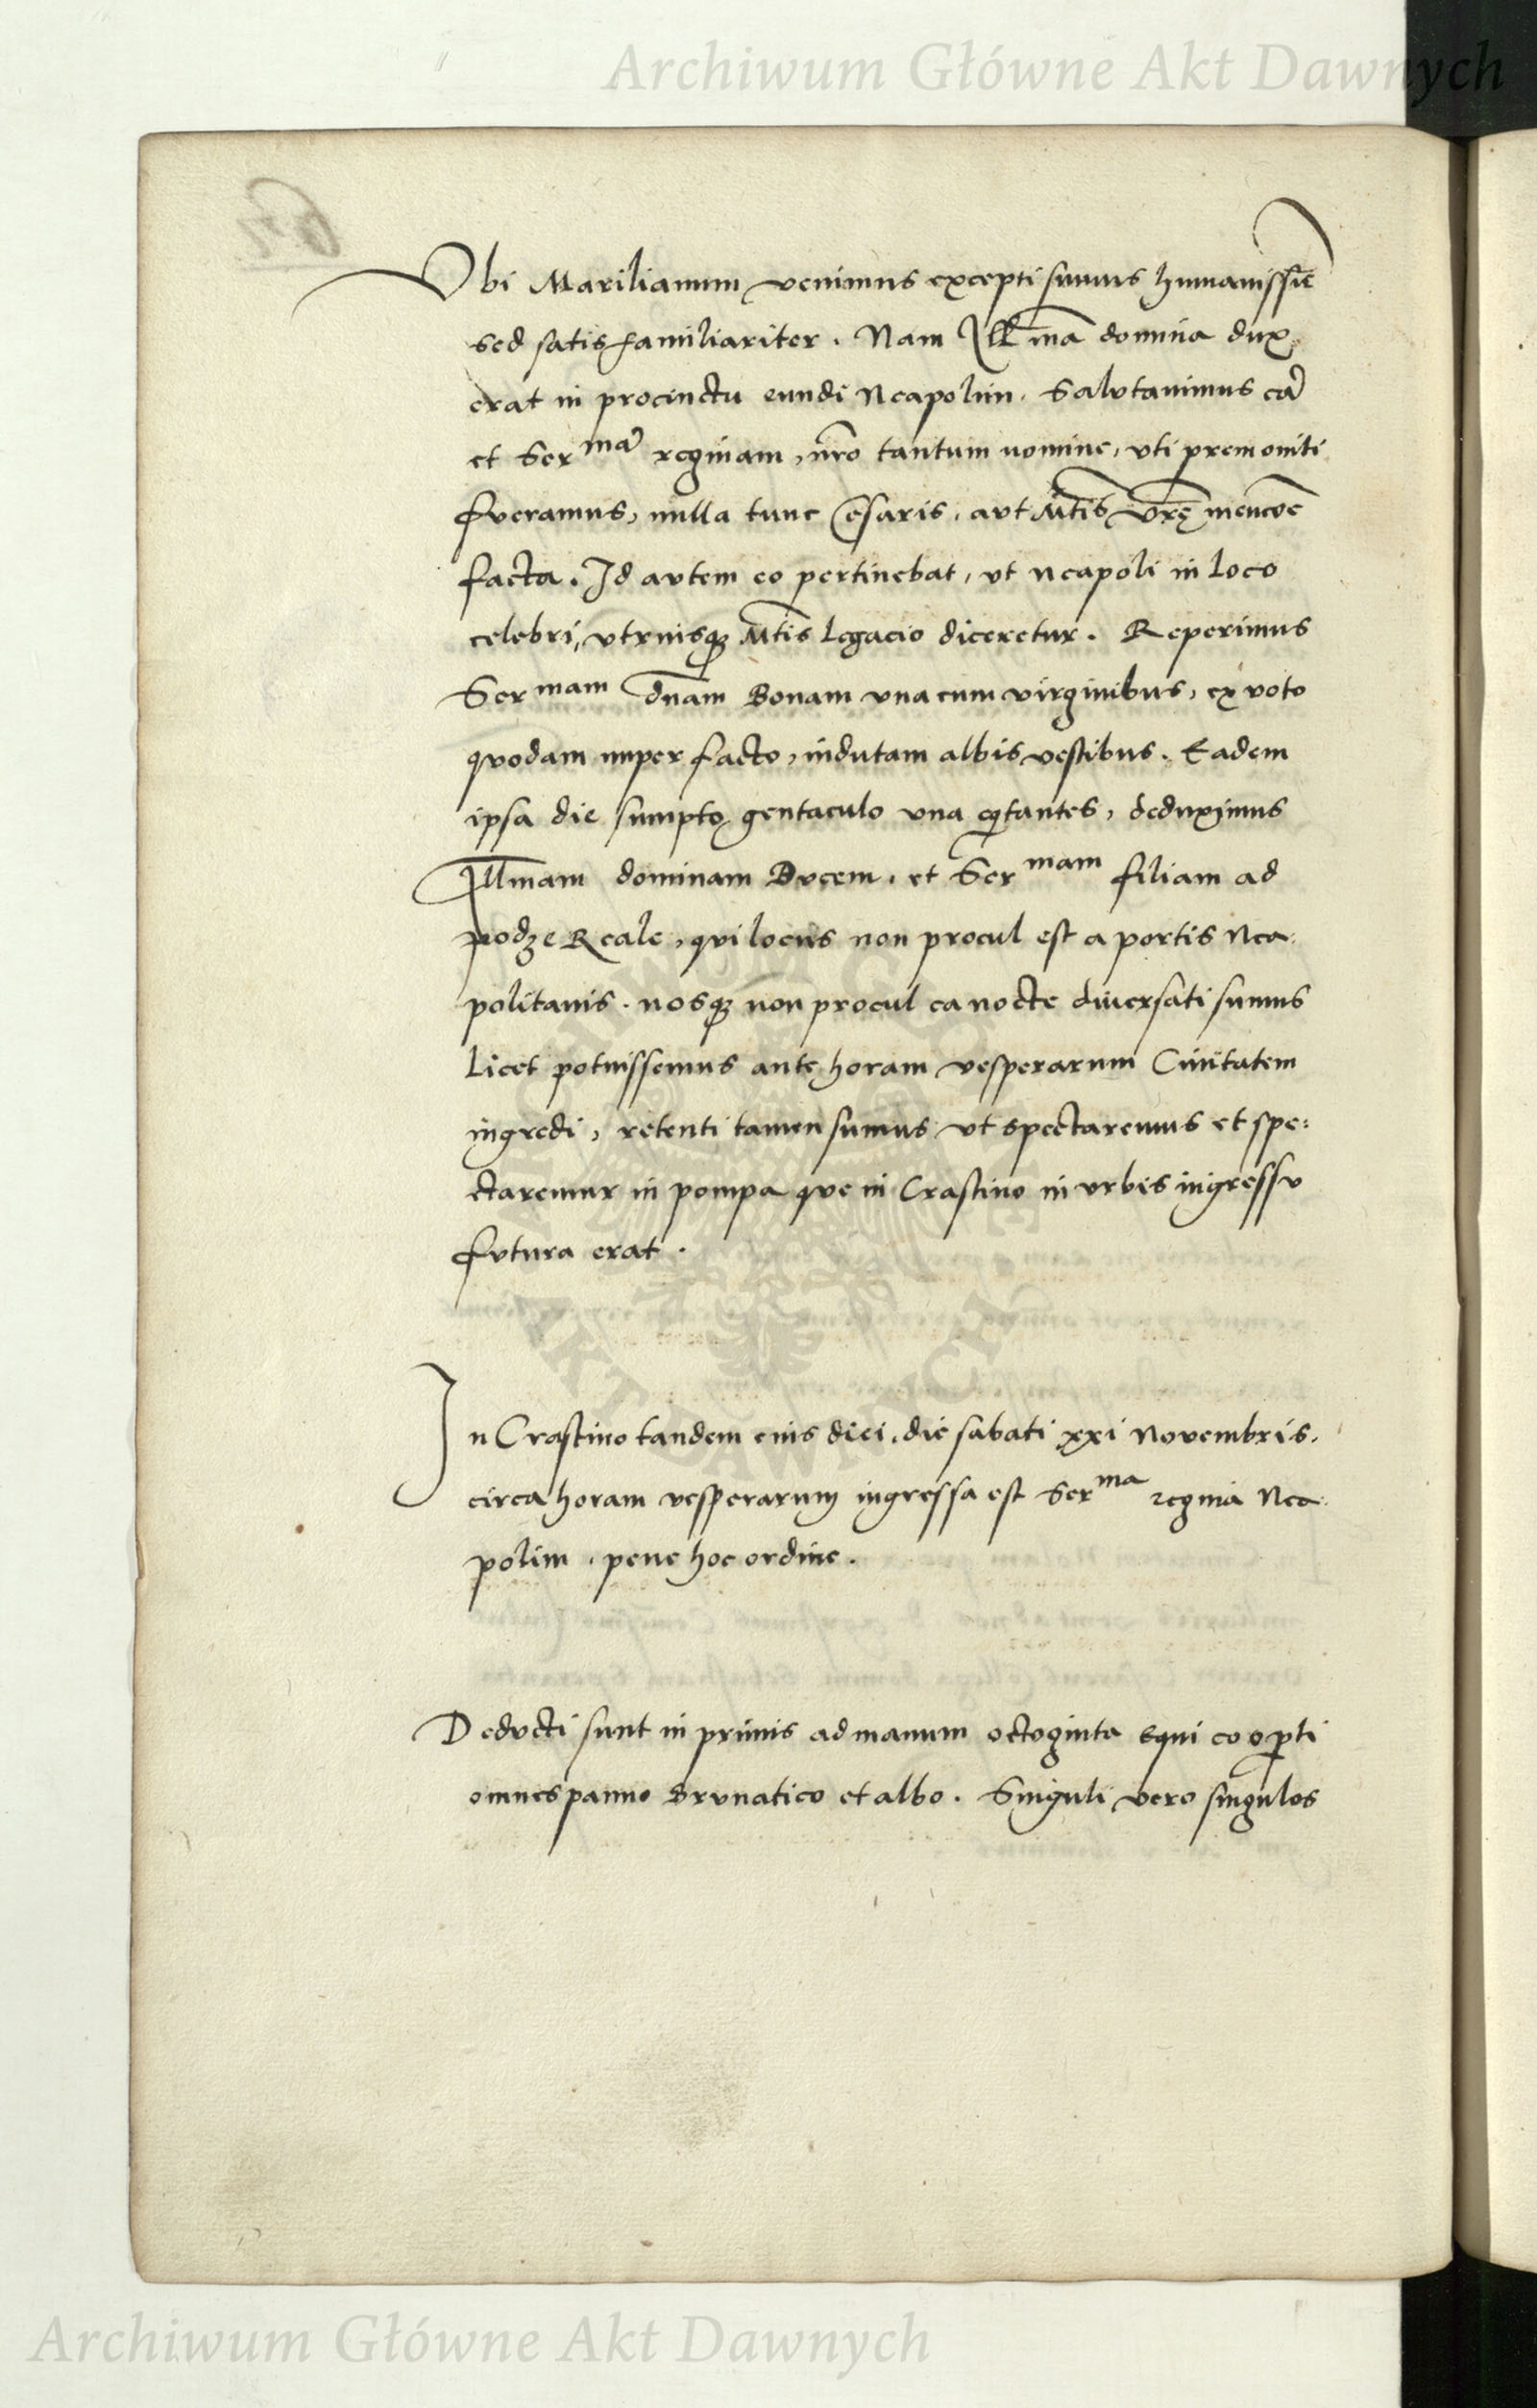 Archiwum Główne Akt Dawnych
Vbi Marilianum venimus excepti sumus humanissīe
sed satis familiariter. Nam Illma domina dux
erat in procinctu eundi Neapolim. Salutauimus eā
et Sermā reginam, nr̄o tantum nomine, vti premoniti
fueramus, nulla tunc Cesaris, aut Mtis vrē mencōe
facta. Id autem eo pertinebat, ut neapoli in loco
celebri, vtriusqꝫ Mtis legacio diceretur. Reperimus
Sermam dnam Bonam vna cum virginibus, ex voto
quodam nuper facto, indutam albis vestibus. Eadem
ipsa die sumpto gentaculo vna eqtantes, deduximus
Illmam dominam Ducem, et Sermam filiam ad
podze Reale, qui locus non procul est a portis Nea
politanis. nosqꝫ non procul ea nocte diuersati sumus
Licet potuissemus ante horam vesperarum Ciuitatem
ingredi, retenti tamen sumus vt spectaremus et spe:
ctaremur in pompa que in Crastino in vrbis ingressu
futura erat.
In Crastino tandem eius diei, die sabati xxi Novembris,
circa horam vesperarum ingressa est Serma regina Nea
polim, pene hoc ordine.
Deducti sunt in primis ad manum octoginta equi coopti
omnes panno Brunatico et albo. Singuli vero singulos
Archiwum Główne Akt Dawnych